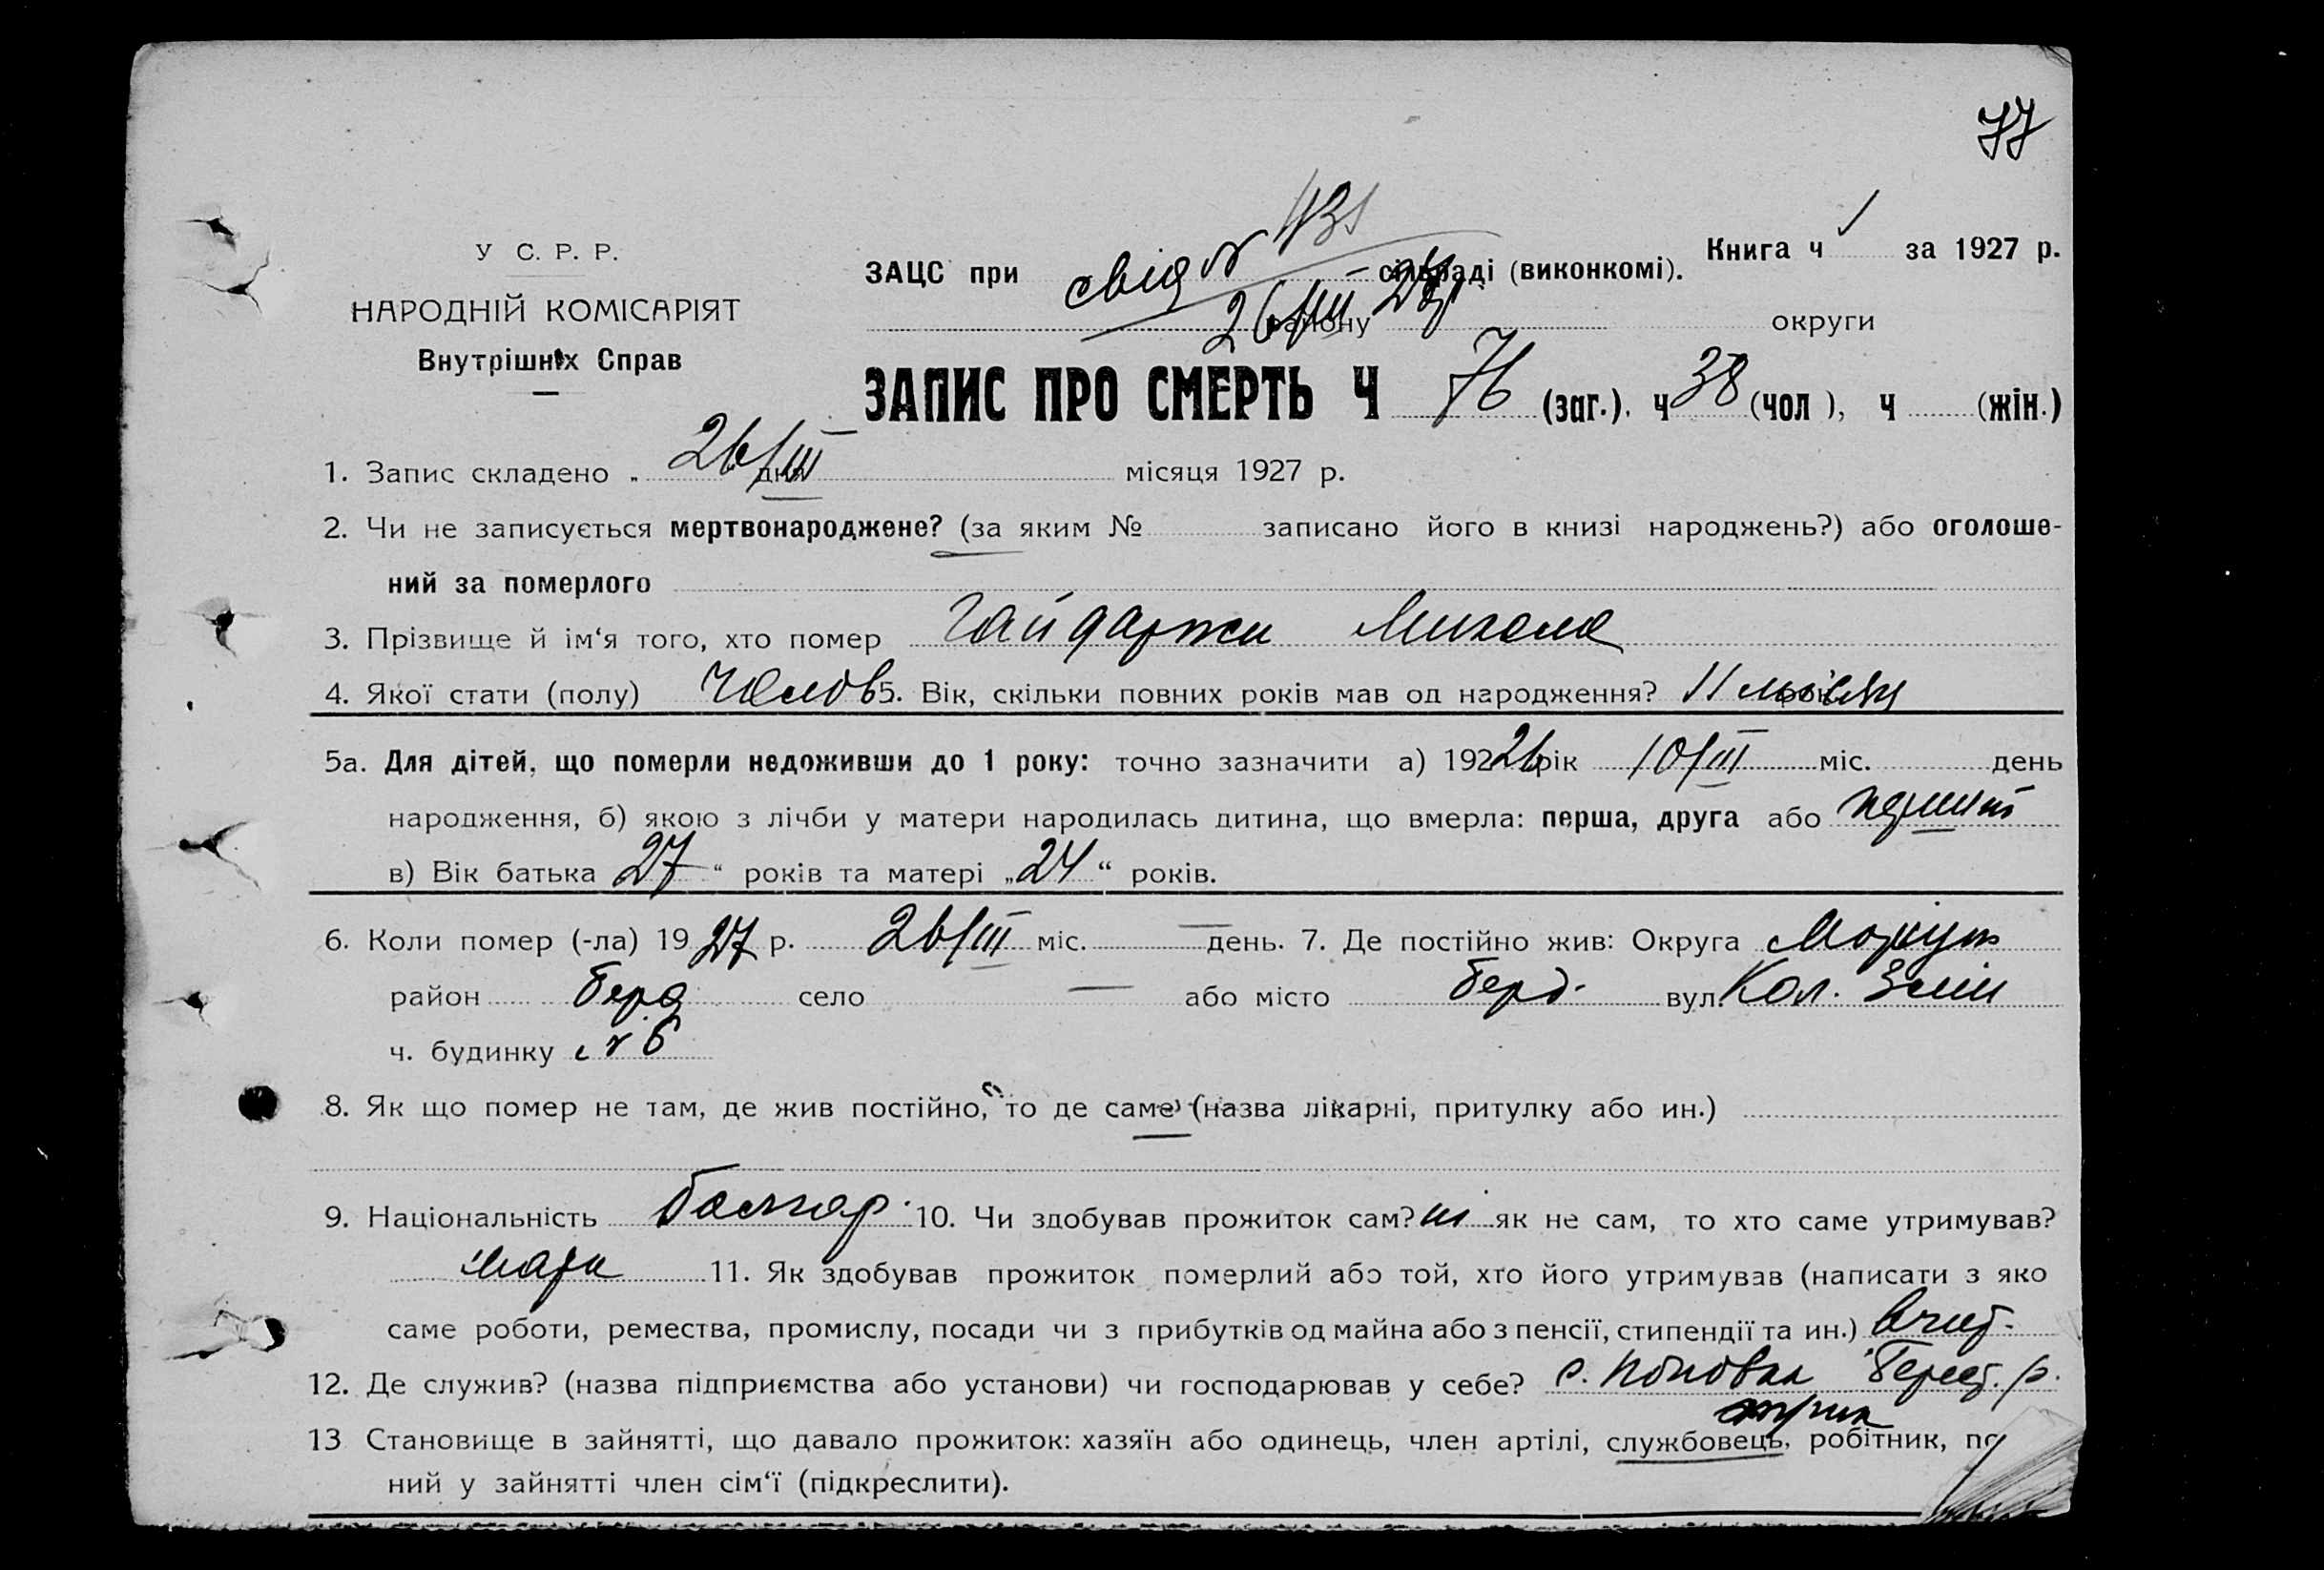 77
У С. Р. Р.
НАРОДНІЙ КОМІСАРІЯТ
Внутрішніх Справ
431
ЗАЦС при свід № сільраді (виконкомі). Книга ч 1 за 1927 р.
26/III 27р. району округи
ЗАПИС ПРО СМЕРТЬ Ч 76 (заг.). ч 38 (чол), ч (жін.)
1. Запис складено „ 26/III дня місяця 1927 р.
2. Чи не записується мертвонароджене? (за яким № записано його в книзі народжень?) або оголоше-
ний за померлого
3. Прізвище й ім‘я того, хто помер Гайдаржи Микола
4. Якої стати (полу) Чолов 5. Вік, скільки повних років мав од народження? 11 місяц
5а. Для дітей, що померли недоживши до 1 року: точно зазначити а) 192 26 рік 10/III міс. день
народження, б) якою з лічби у матери народилась дитина, що вмерла: перша, друга або
в) Вік батька 27 “ років та матері „ 24 “ років.
6. Коли помер (-ла) 19 27 р. 26/III міс. — день. 7. Де постійно жив: Округа Маріуп
район Берд село — або місто Берд. вул. Кол. Змін
ч. будинку № 6
8. Як що помер не там, де жив постійно, то де саме (назва лікарні, притулку або ин.)
9. Національність болгар. 10. Чи здобував прожиток сам? ні як не сам, то хто саме утримував?
мати 11. Як здобував прожиток померлий або той, хто його утримував (написати з яко
саме роботи, ремества, промислу, посади чи з прибутків од майна або з пенсії, стипендії та ин.) вчит.
12. Де служив? (назва підприємства або установи) чи господарював у себе? с. Поповка р.
13 Становище в зайнятті, що давало прожиток: хазяїн або одинець, член артілі, службовець, робітник, по
ний у зайнятті член сім‘ї (підкреслити).